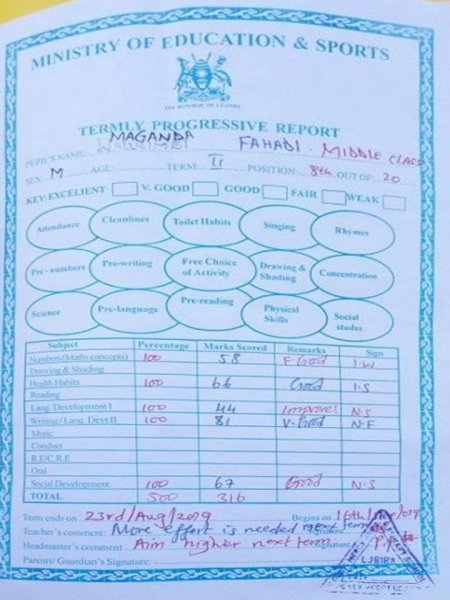 MINISTRY OF EDUCATION & SPORTS
THE REPUBLIC OF UGANDA
TERMLY PROGRESSIVE REPORT
PUPIL'S NAME MAGANDA FAHADI - MIDDLE CLASS
SEX M AGE TERM II POSITION 8th OUT OF 20
KEY: EXCELLENT V. GOOD GOOD FAIR WEAK
Attendance Cleanlines Toilet Habits Singing Rhymes
Pre-numbers Pre-writing Free Choice of Activity Drawing & Shading Concentration
Science Pre-language Pre-reading Physical Skills Social studes
Subject Percentage Marks Scored Remarks Sign
Numbers (Maths concepts) 100 58 F. Good
Drawing & Shading
Health Habits 100 66 Good I.S
Reading
Lang. Development I 100 44 Improve! N.S
Writing/Lang. Devt II 100 81 V. Good N.F
Music
Conduct
R.E C.R.E
Oral
Social Development 100 67 Good N.S
TOTAL 500 316
Term ends on 23rd/Aug/2019 Begins on 16th/
Teacher's comment: More effort is needed next term
Headmaster's comment Aim higher next term Signature
Parents/ Guardian's Signature